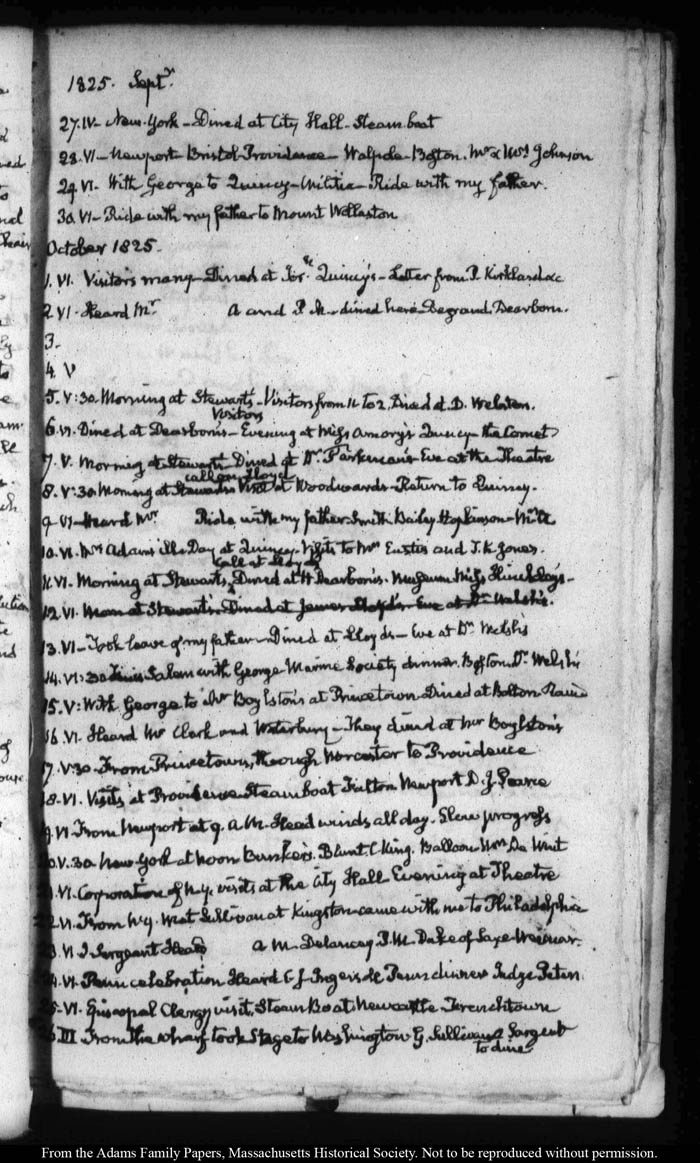 1825. Septr.
27. IV. New-York - Dined at City Hall - Steam boat
28. VI - Newport Bristol Providence - Walpole Boston. Mr & Mrs Johnson
29. VI. With George to Quincy - Militia - Ride with my father.
30. VI - Ride with my father to Mount Wollaston
October 1825.
1. VI. Visitors many - Dined at Jos.h Quincy's - Letter from P. Kirkland &c
2. VI. Heard Mr A and P. M. dined here Degrand, Dearborn.
3.
4. V
5. V:30. Morning at Stewart's - Visitors from 11 to 2. Dined at D. Webster.
Visitors
6. VI. Dined at Dearborn's - Evening at Miss Amory's Quincy - the Comet
7. V. Morning at Stewart Dined at Dr. Parkman's Eve at the Theatre
call on Lloyd
8. V:30. Morning at Stewarts Visit at Woodwards - Return to Quincy.
9. VI - Heard Mr Ride with my father. Smith Bailey Hopkinson
10. VI. Mrs Adams ill. Day at Quincy. Visits to Mrs Eustis and J. K. Jones.
call at Lloyds
11. VI. Morning at Stewarts, Dined at H Dearborn's. Museum Miss Hinckley's -
12. VI. Morn at Stewart's - Dined at James Lloyd's - Eve at Dr Welsh's.
13. VI - Took leave of my father - Dined at Lloyds - Eve at Dr. Welsh's
14. VI:30 Salem with George Marine Society dinner. Boston. Dr. Welsh's
15. V: With George to Mr Boylston's at Princetown Dined at Bolton Rain
16. VI. Heard Mr Clark and Waterbury - They dined at Mr Boylston's
17. V:30. From Princetown, through Worcester to Providence
18. VI. Visits at Providence Steam boat Fulton Newport D. J. Pearce
9. VI From Newport at 9. A.M. Head winds all day. Slow progress
0. V. 30. New-York at noon Bunker's. Blunt, C King. Balloon Wm De Witt
1. VI. Corporation of N.Y. visits at the City Hall Evening at Theatre
2. VI. From N.Y. met Sullivan at Kingston came with me to Philadelphia
3. VI J. Sergeant Heard A M. Delancey P.M. Duke of Saxe-Weimar.
4. VI. Penn celebration Heard C J. Ingersoll Penn dinner Judge Peters
5. VI. Episcopal Clergy visit, Steam Boat Newcastle Frenchtown
6. III From the wharf took Stage to Washington G. Sullivan & Sargent
to dine
From the Adams Family Papers, Massachusetts Historical Society. Not to be reproduced without permission.